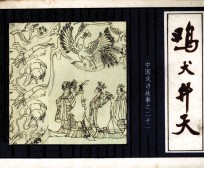 鸡犬升天
中国成语故事之二十一